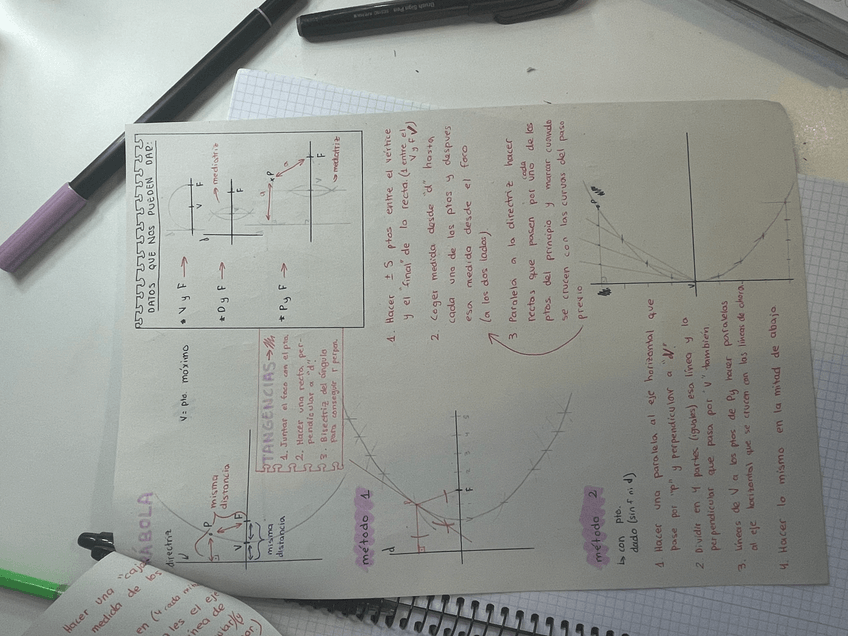 PARÁBOLA
directriz
P
misma
distancia
V
F
misma
distancia
V = pto. máximo
DATOS QUE NOS PUEDEN DAR:
* V y F →
V F
* D y F →
→ mediatriz
F
* P y F →
a
a
P
V
F
→ mediatriz
TANGENCIAS →
1. Juntar el foco con el pto.
2. Hacer una recta per-
pendicular a "d"
3. Bisectriz del ángulo
para conseguir
método 1
d
F
1. Hacer ± 5 ptos entre el vértice
y el "final" de la recta. (1 entre el
V y F)
2. Coger medida desde "d" hasta
cada uno de los ptos y despues
esa medida desde el foco
(a los dos lados)
3 Paralela a la directriz hacer
rectas que pasen por cada uno de los
ptos. del principio y marcar cuando
se crucen con las curvas del paso
previo
método 2
↳ con pto.
dado (sin F ni d)
1 Hacer una paralela al eje horizontal que
pase por "p" y perpendicular a "V"
2 Dividir en 4 partes (iguales) esa línea y la
perpendicular que pasa por "V" también
3. Líneas de V a los ptos de Py hacer paralelas
al eje horizontal que se crucen con las líneas de ahora.
4. Hacer lo mismo en la mitad de abajo
V
P
Hacer una "caja
medida de los
en (4 cada
les el eje